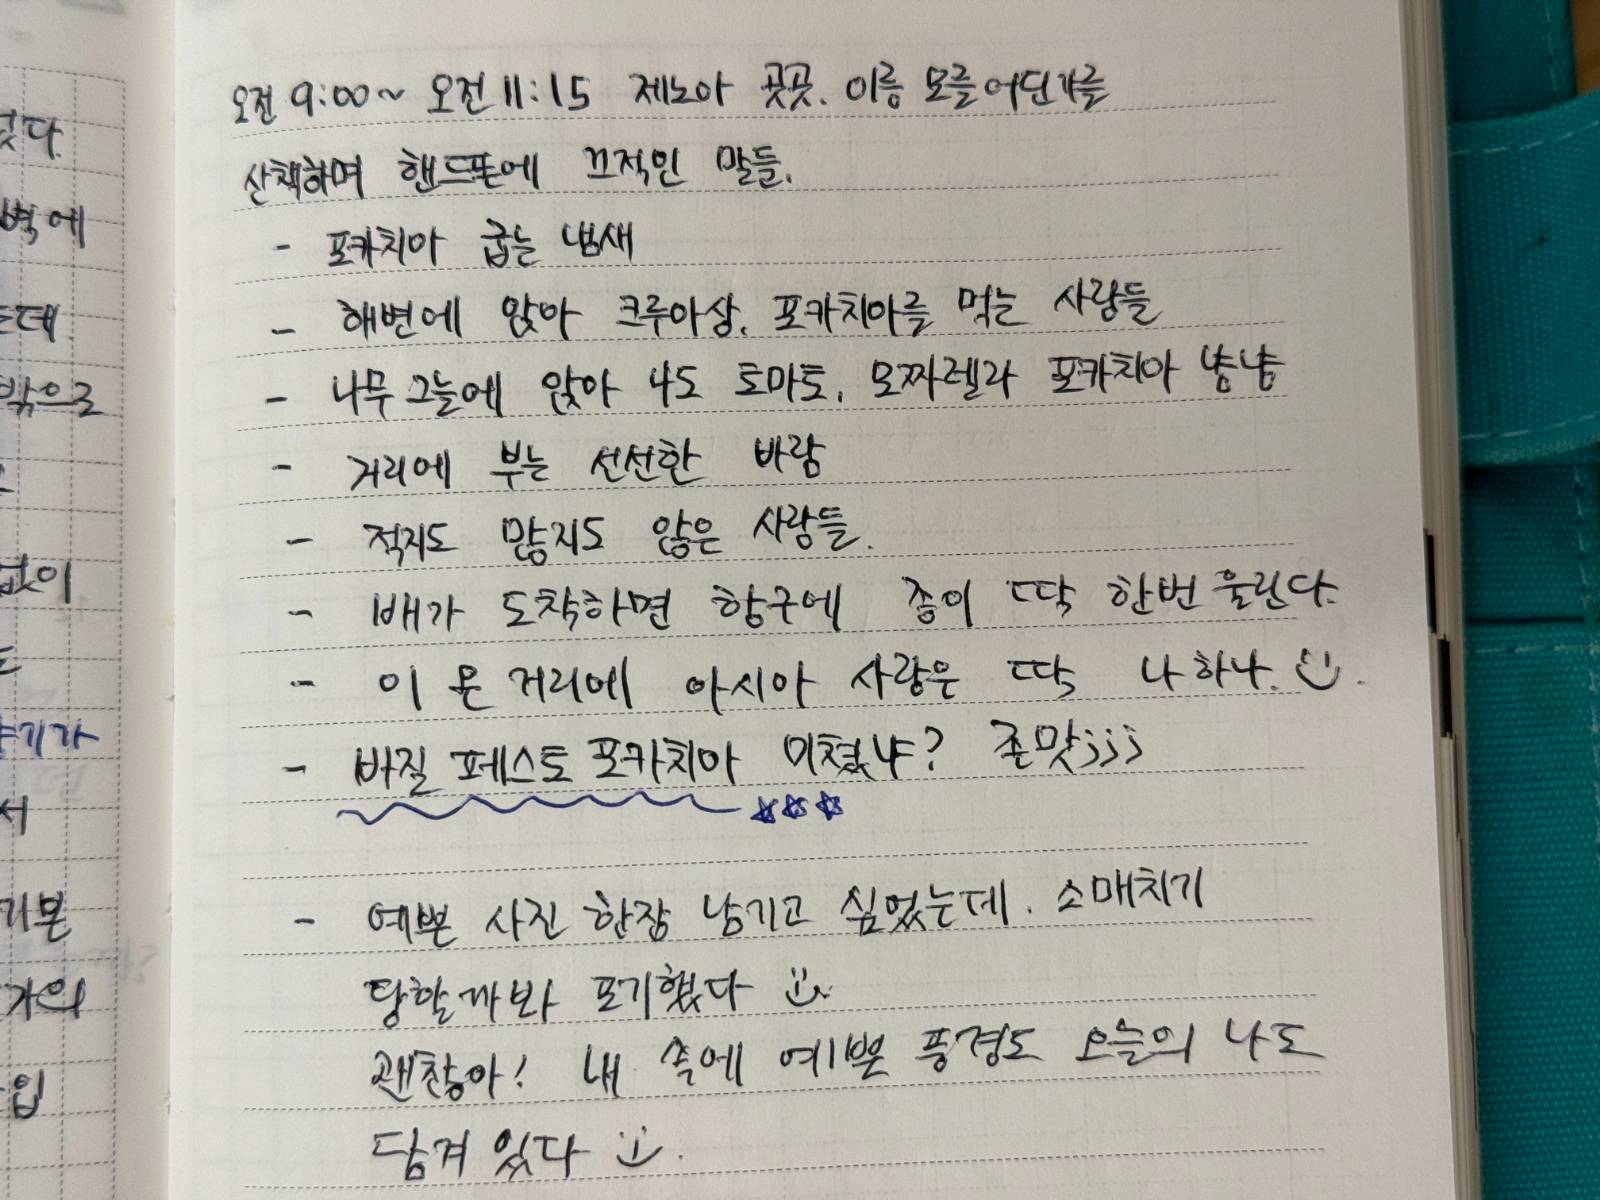 오전 9:00~ 오전 11:15 제노아 곳곳. 이름 모를 어딘가를
산책하며 핸드폰에 끄적인 말들.
- 포카치아 굽는 냄새
- 해변에 앉아 크루아상, 포카치아를 먹는 사람들
- 나무 그늘에 앉아 나도 토마토, 모짜렐라 포카치아 냠냠
- 거리에 부는 선선한 바람
- 적지도 많지도 않은 사람들.
- 배가 도착하면 항구에 종이 딱 한번 울린다.
- 이 온 거리에 아시아 사람은 딱 나 하나. :)
- 바질 페스토 포카치아 미쳤냐? 존맛;;;
☆☆☆
- 예쁜 사진 한장 남기고 싶었는데. 소매치기
당할까봐 포기했다 :)
괜찮아! 내 속에 예쁜 풍경도 오늘의 나도
담겨 있다 :).
벽에
밖으로
없이
기가
서
기본
가의
입